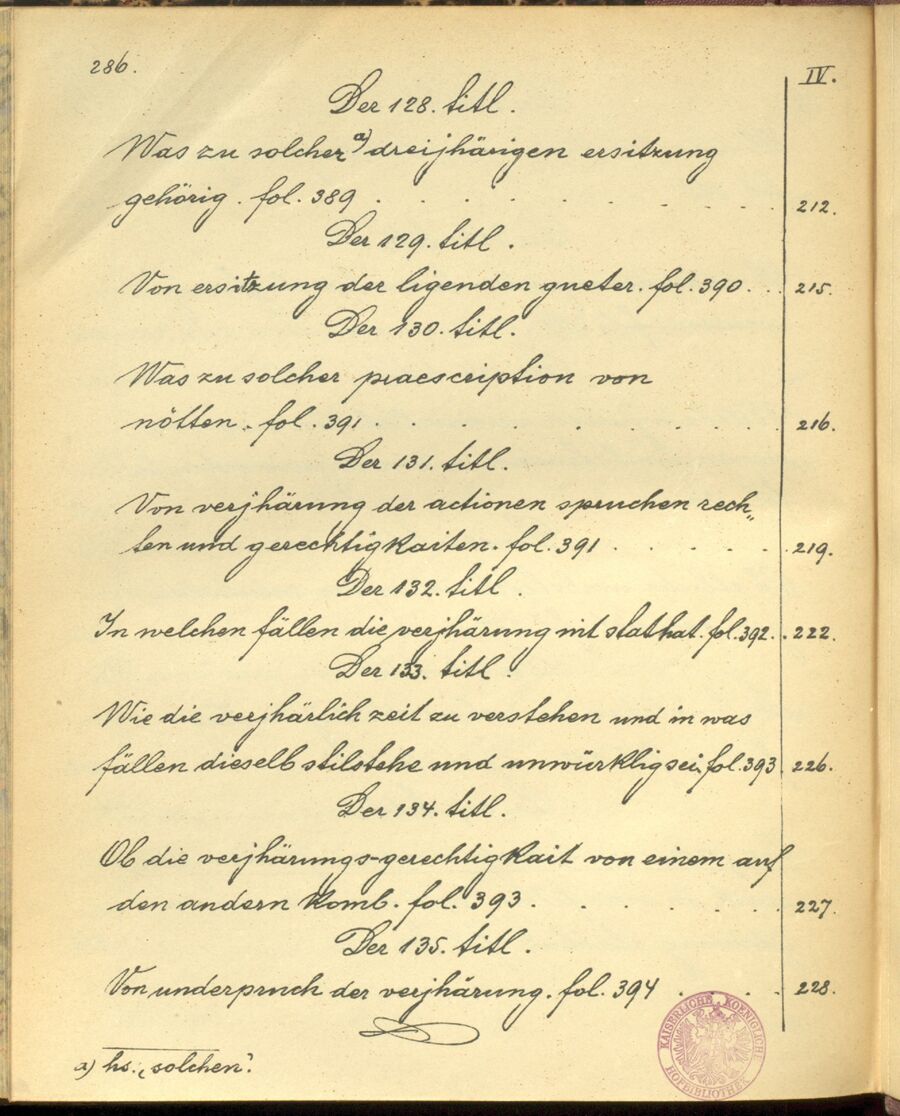 286.
IV.
Der 128. titl.
Was zu solcher a) dreijhärigen ersitzung
gehörig. fol. 389 . . . . . . . . . 212.
Der 129. titl.
Von ersitzung der ligenden gueter. fol. 390 . . . 215.
Der 130. titl.
Was zu solcher praescription von
nötten. fol. 391 . . . . . . . . . 216.
Der 131. titl.
Von verjhärung der actionen spruchen rech„
ten und gerechtigkaiten. fol. 391 . . . . . 219.
Der 132. titl.
In welchen fällen die verjhärung nit stathat. fol. 392. . 222.
Der 133. titl.
Wie die verjhärlich zeit zu verstehen und in was
fällen dieselb stilstehe und unwürklig sei. fol. 393 226.
Der 134. titl.
Ob die verjhärungs-gerechtigkait von einem auf
den andern komb. fol. 393 . . . . . . 227.
Der 135. titl.
Von underpruch der verjhärung. fol. 394 . . . 228.
a) hs. „solchen".
KAISERLICHE KOENIGLICHE
HOFBIBLIOTHEK